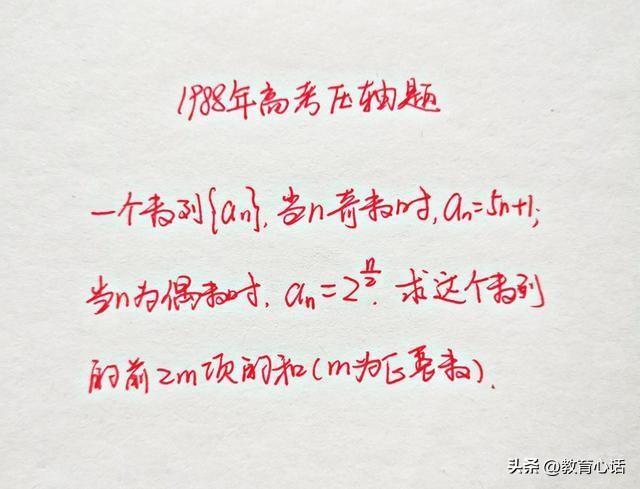 1988年高考压轴题
一个数列{aₙ},当n奇数时,aₙ=5n+1;
当n为偶数时,aₙ=2^(n/2).求这个数列
的前2m项的和(m为正整数).
头条 @教育心话